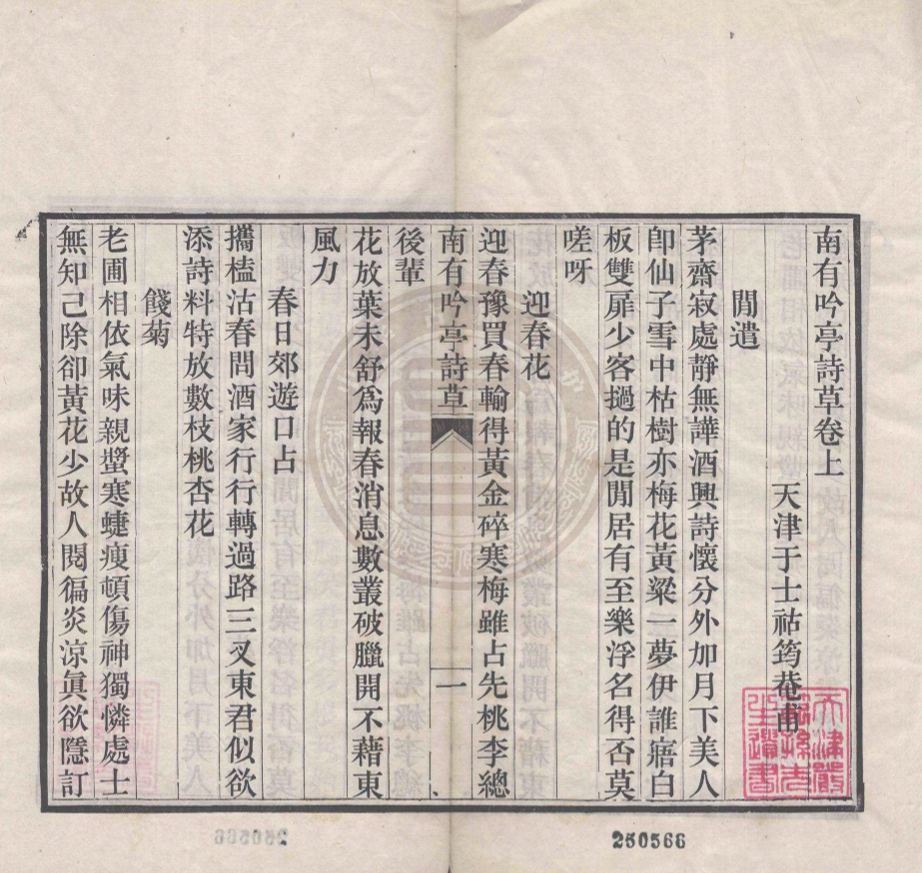 南有吟亭詩草卷上
天津于士祜筠菴甫
閒遣
茅齋寂處靜無譁酒興詩懷分外加月下美人
卽仙子雪中枯樹亦梅花黃粱一夢伊誰寤白
板雙扉少客撾的是閒居有至樂浮名得否莫
嗟呀
迎春花
迎春豫買春輸得黃金碎寒梅雖占先桃李總
南有吟亭詩草
一
後輩
花放葉未舒爲報春消息數叢破臘開不藉東
風力
春日郊遊口占
攜榼沽春問酒家行行轉過路三叉東君似欲
添詩料特放數枝桃杏花
餞菊
老圃相依氣味親蛩寒蜨瘦頓傷神獨憐處士
無知己除卻黃花少故人閱徧炎涼眞欲隱訂
天津嚴
範孫先
生遺書
250566